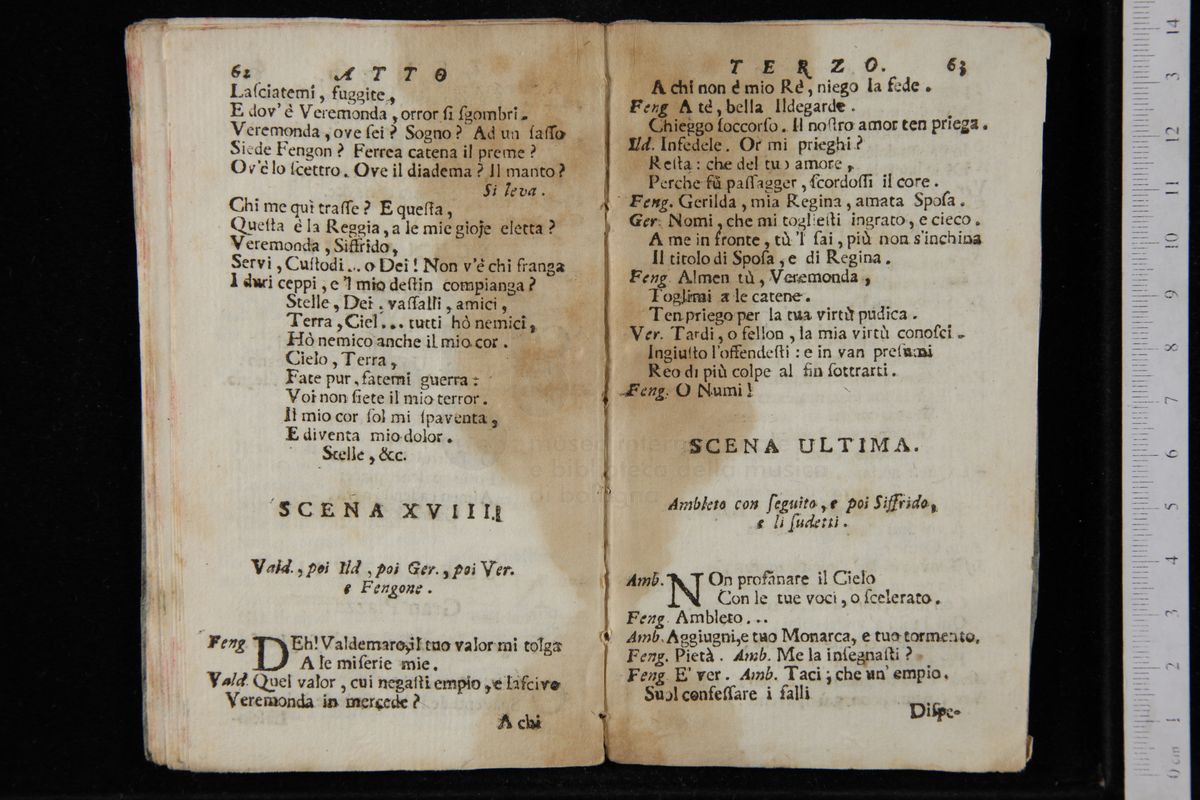 62 ATTO
Laſciatemi, fuggite,
E dov' è Veremonda, orror ſi ſgombri.
Veremonda, ove ſei? Sogno? Ad un ſaſſo
Siede Fengon? Ferrea catena il preme?
Ov'è lo ſcettro. Ove il diadema? Il manto?
Si leva.
Chi me quì traſſe? E queſta,
Queſta è la Reggia, a le mie gioje eletta?
Veremonda, Siffrido,
Servi, Cuſtodi... o Dei! Non v'è chi franga
I duri ceppi, e 'l mio deſtin compianga?
Stelle, Dei, vaſſalli, amici,
Terra, Ciel... tutti hò nemici,
Hò nemico anche il mio cor.
Cielo, Terra,
Fate pur, fatemi guerra:
Voi non ſiete il mio terror.
Il mio cor ſol mi ſpaventa,
E diventa mio dolor.
Stelle, &c.
SCENA XVIIII.
Vald., poi Ild, poi Ger., poi Ver.
e Fengone.
Feng DEh! Valdemaro, il tuo valor mi tolga
A le miſerie mie.
Vald. Quel valor, cui negaſti empio, e laſcivo
Veremonda in mercede?
A chi
TERZO. 63
A chi non è mio Rè, niego la fede.
Feng A tè, bella Ildegarde.
Chieggo ſoccorſo. Il noſtro amor ten priega.
Ild. Infedele. Or mi prieghi?
Reſta: che del tuo amore,
Perche fù paſſagger, ſcordoſſi il core.
Feng. Gerilda, mia Regina, amata Spoſa.
Ger. Nomi, che mi toglieſti ingrato, e cieco.
A me in fronte, tù 'l ſai, più non s'inchina
Il titolo di Spoſa, e di Regina.
Feng Almen tù, Veremonda,
Toglimi a le catene.
Ten priego per la tua virtù pudica.
Ver. Tardi, o fellon, la mia virtù conoſci.
Ingiuſto l'offendeſti: e in van preſumi
Reo di più colpe al fin ſottrarti.
Feng. O Numi!
SCENA ULTIMA.
Ambleto con ſeguito, e poi Siffrido,
e li ſudetti.
Amb. NOn profanare il Cielo
Con le tue voci, o ſcelerato.
Feng. Ambleto...
Amb. Aggiugni, e tuo Monarca, e tuo tormento.
Feng. Pietà. Amb. Me la inſegnaſti?
Feng. E' ver. Amb. Taci; che un' empio.
Suol confeſſare i falli
Diſpe-
museo internazionale
e biblioteca della musica
di bologna
0 cm 1 2 3 4 5 6 7 8 9 10 11 12 3 14